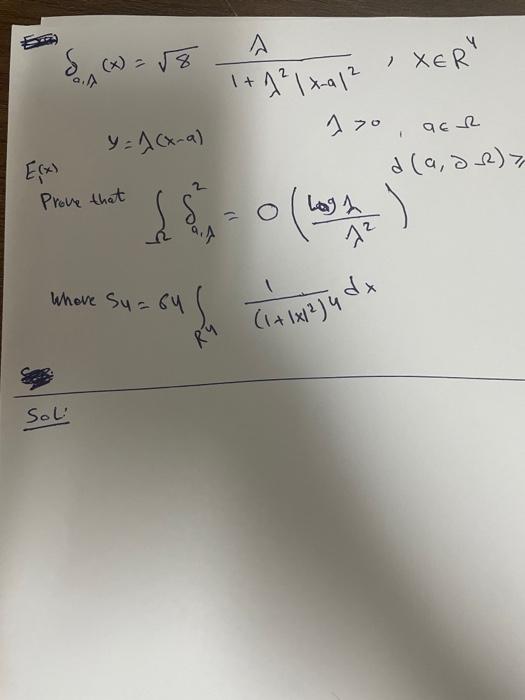 δ_{a,λ}(x) = √8 λ / (1 + λ² |x-a|²) , x ∈ R⁴
y = λ(x-a)
λ > 0 , a ∈ Ω
E₁(x)
d(a, ∂Ω) ≥
Prove that ∫_Ω δ²_{a,λ} = O( log λ / λ² )
Where S₄ = 64 ∫_{R⁴} 1 / (1+|x|²)⁴ dx
Sol: